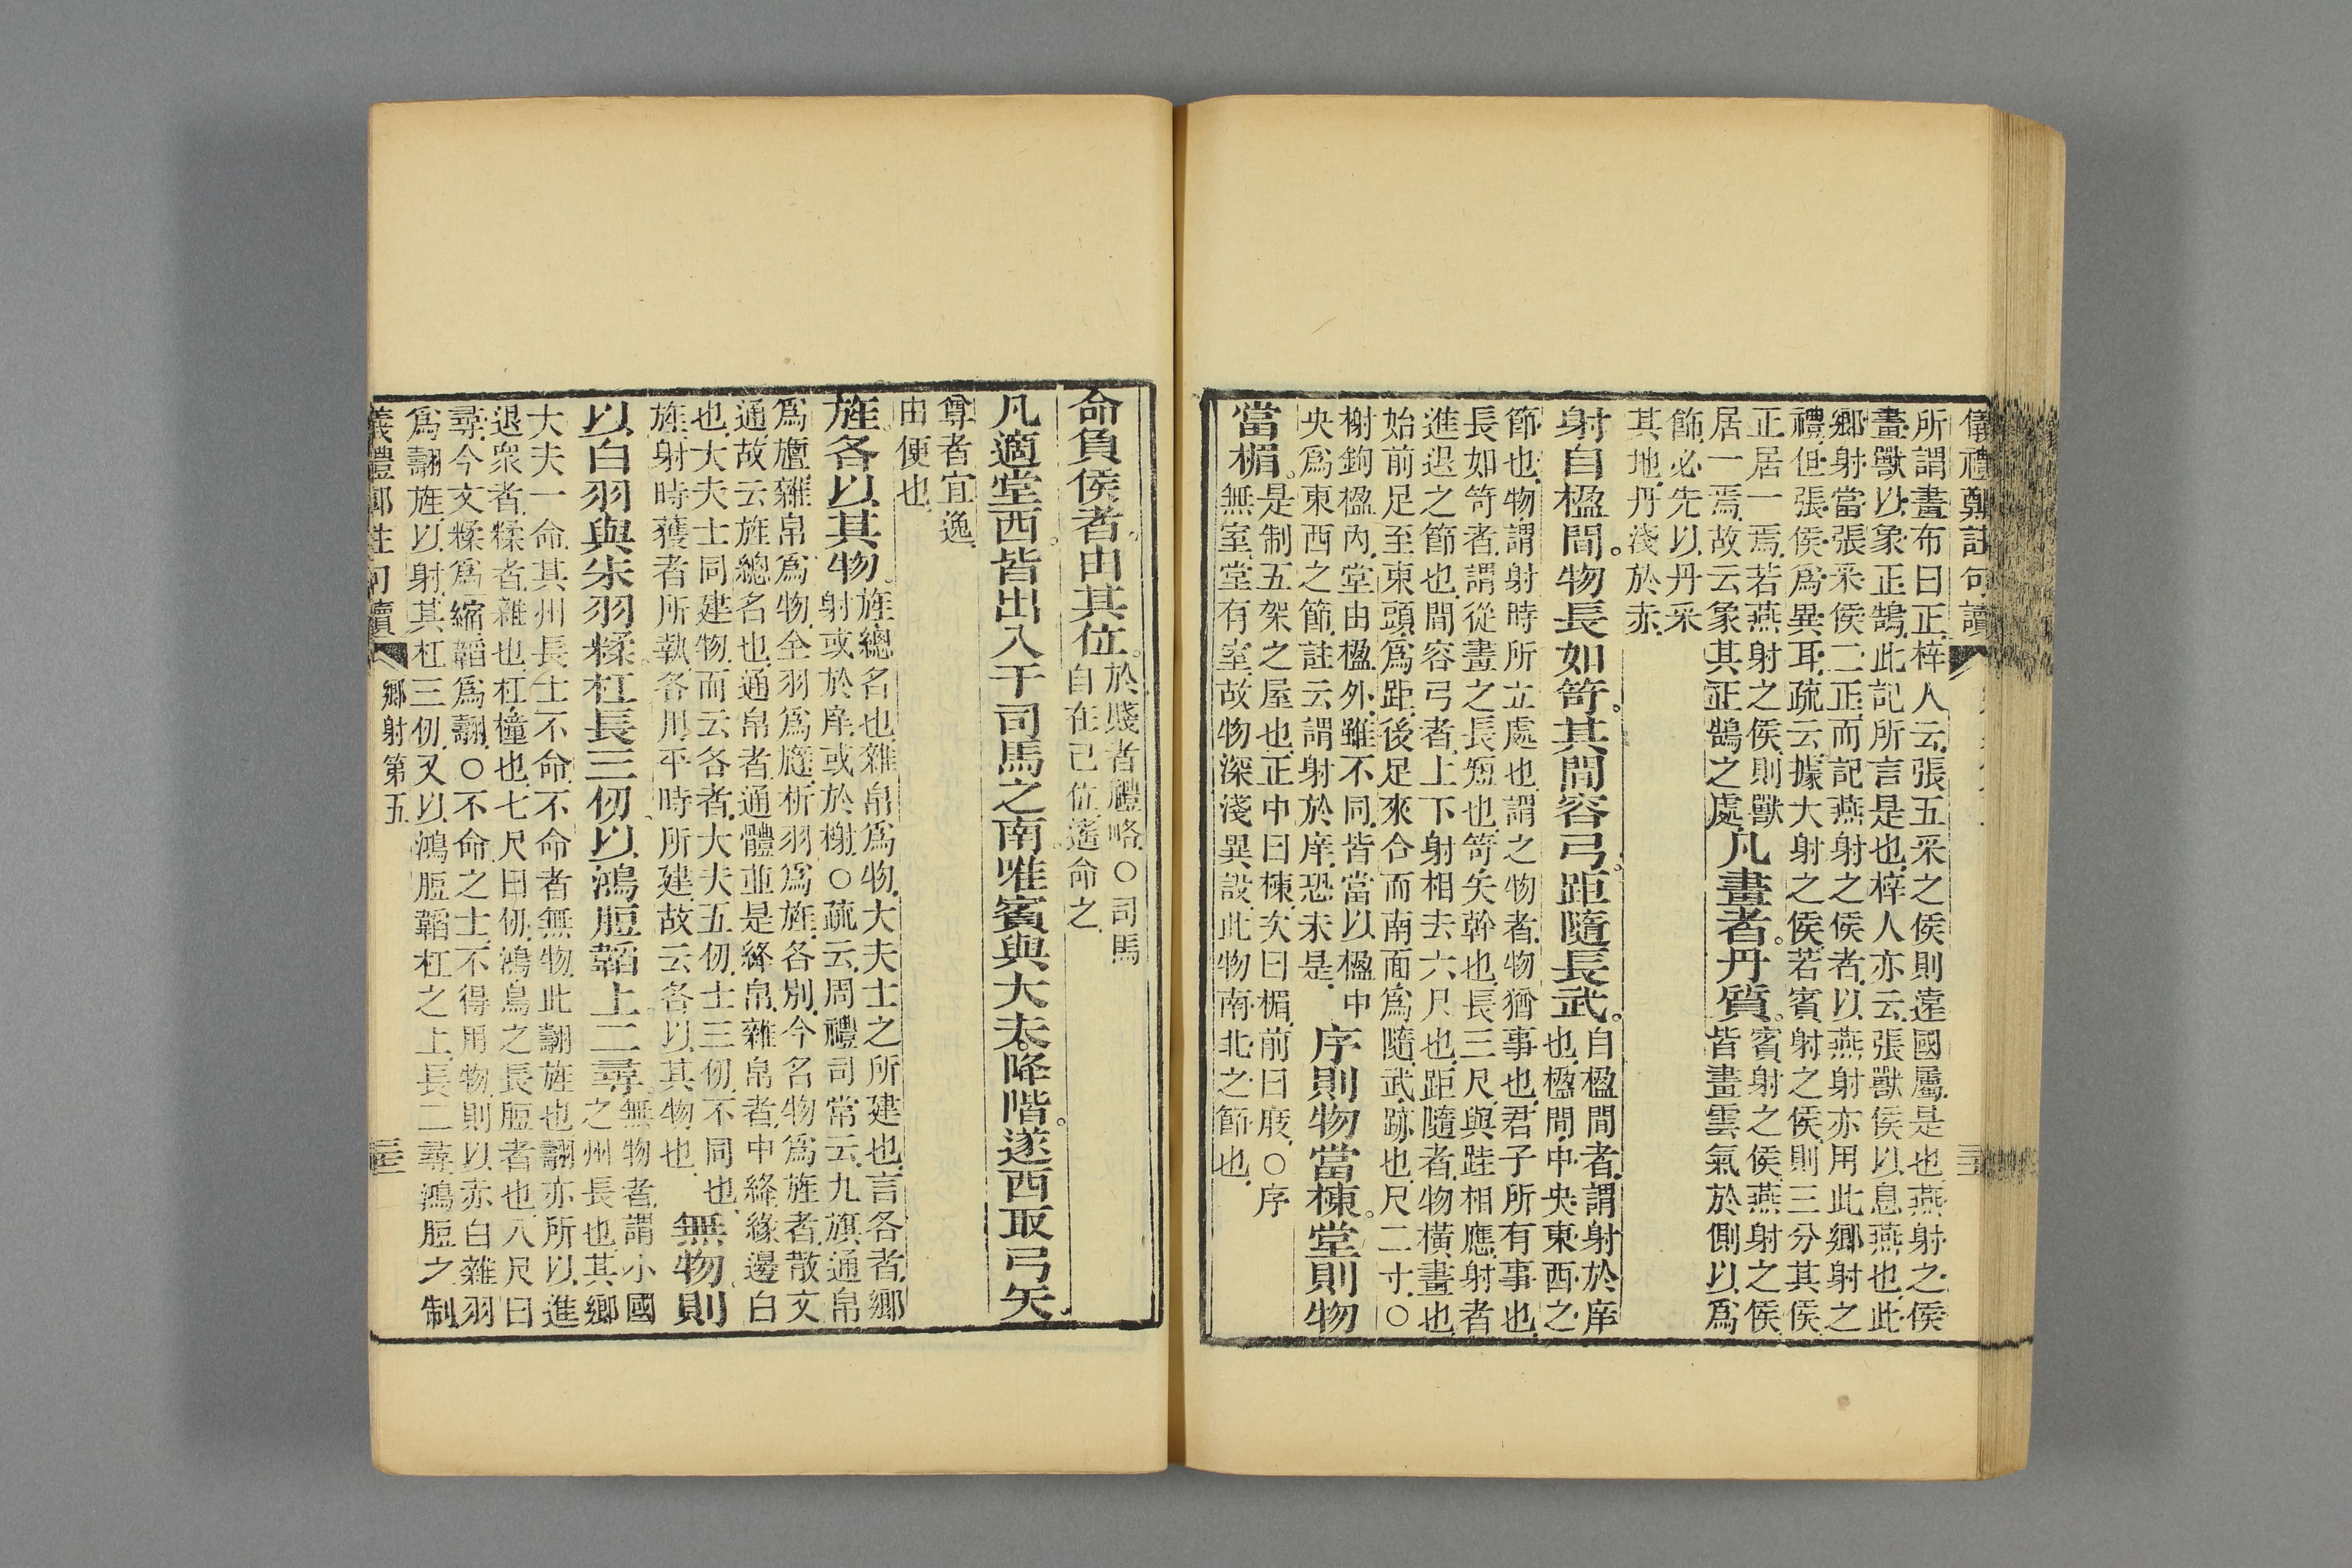 儀禮鄭註句讀
所謂畫布曰正梓人云張五采之侯則遠國屬是也燕射之侯
畫獸以象正鵠此記所言是也梓人亦云張獸侯以息燕也此
鄉射當張采侯二正而記燕射之侯者以燕射亦用此鄉射之
禮但張侯爲異耳疏云據大射之侯若賓射之侯則三分其侯
正居一焉若燕射之侯則獸
居一焉故云象其正鵠之處凡畫者丹質賓射之侯燕射之侯
皆畫雲氣於側以爲
節必先以丹采
其地丹淺於赤
射自楹間物長如笴其間容弓距隨長武自楹間者謂射於庠
也楹間中央東西之
節也物謂射時所立處也謂之物者物猶事也君子所有事也
長如笴者謂從畫之長短也笴矢幹也長三尺與跬相應射者
進退之節也間容弓者上下射相去六尺也距隨者物橫畫也
始前足至東頭爲距後足來合而南面爲隨武跡也尺二寸○
榭鉤楹內堂由楹外雖不同皆當以楹中
央爲東西之節註云謂射於庠恐未是
序則物當棟堂則物
當楣是制五架之屋也正中曰棟次曰楣前曰庪○序
無室堂有室故物深淺異設此物南北之節也
命負侯者由其位於賤者禮略○司馬
自在己位遙命之
凡適堂西皆出入于司馬之南唯賓與大夫降階遂西取弓矢
尊者宜逸
由便也
旌各以其物旌總名也雜帛爲物大夫士之所建也言各者鄉
射或於庠或於榭○疏云周禮司常云九旗通帛
爲旜雜帛爲物全羽爲旞析羽爲旌各別今名物爲旌者散文
通故云旌總名也通帛者通體並是絳帛雜帛者中絳緣邊白
也大夫士同建物而云各者大夫五仞士三仞不同也
旌射時獲者所執各用平時所建故云各以其物也
無物則
以白羽與朱羽糅杠長三仞以鴻脰韜上二尋無物者謂小國
之州長也其鄉
大夫一命其州長士不命不命者無物此翿旌也翿亦所以進
退衆者糅者雜也杠橦也七尺曰仞鴻鳥之長脰者也八尺曰
尋今文糅爲縮韜爲翿○不命之士不得用物則以赤白雜羽
爲翿旌以射其杠三仞又以鴻脰韜杠之上長二尋鴻脰之制
儀禮鄭註句讀
鄉射第五